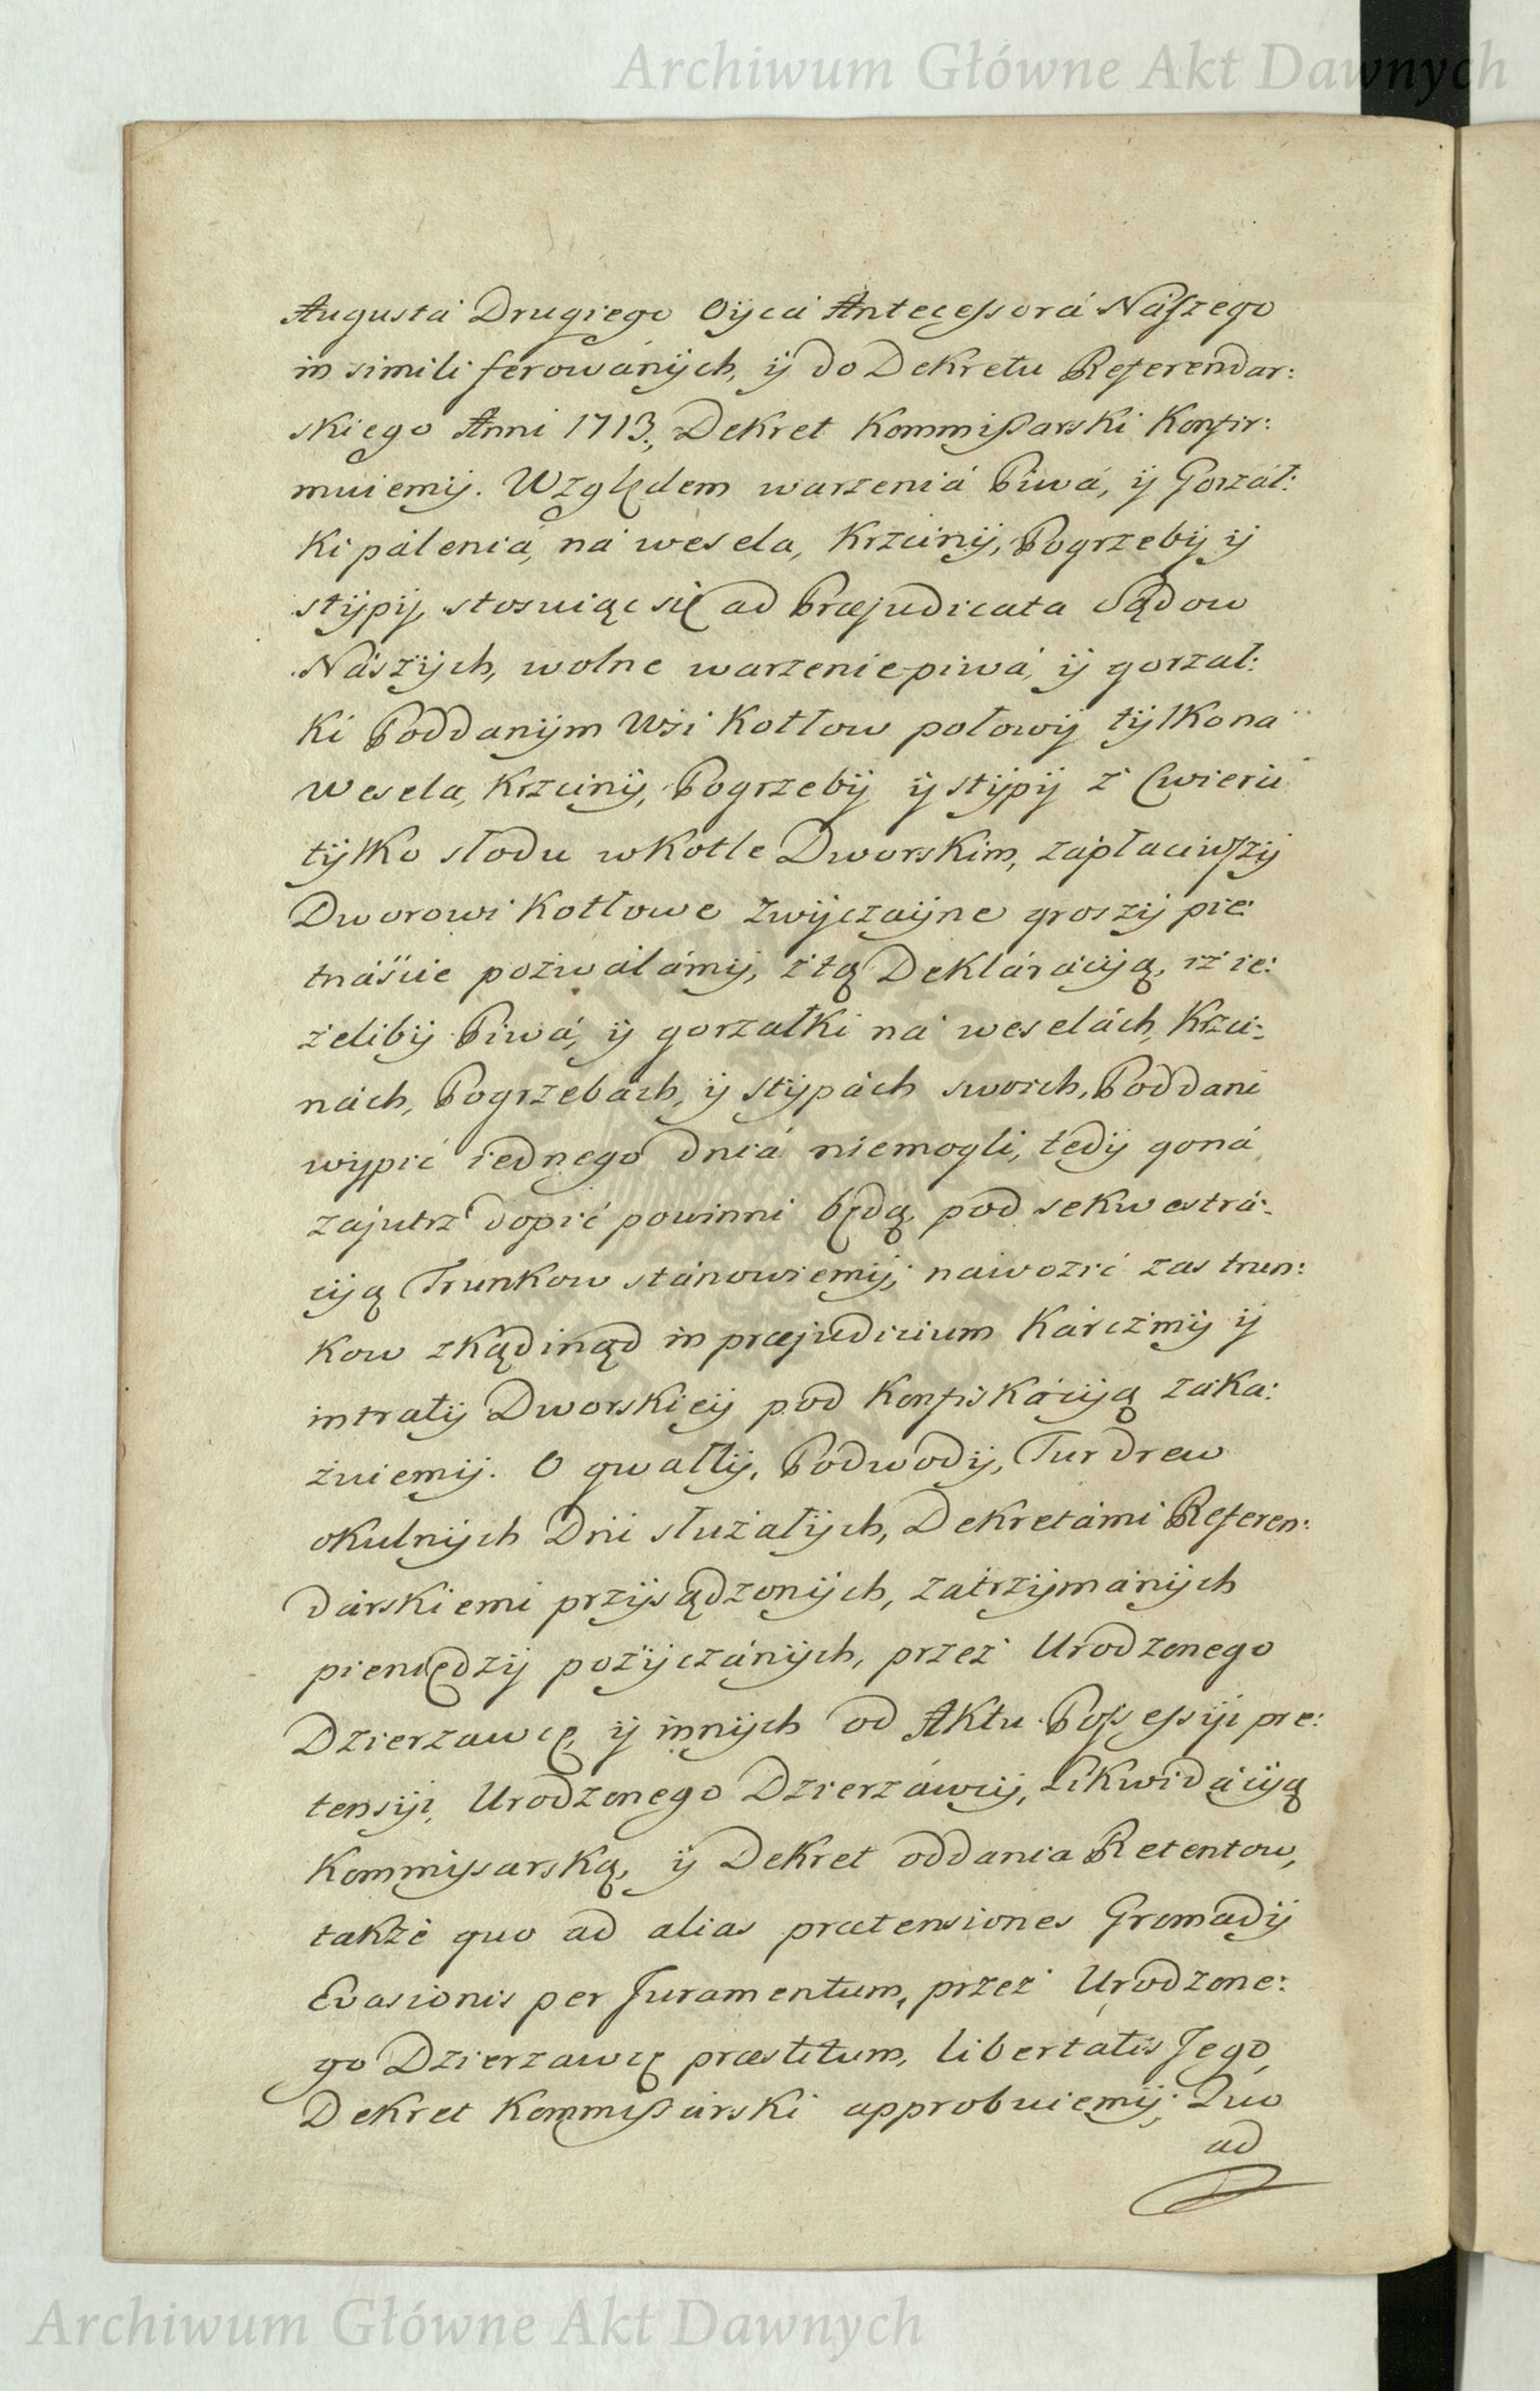 Archiwum Główne Akt Dawnych
Augusta Drugiego Oyca Antecessorá Nászego
in simili ferowánÿch, ÿ do Dekretu Referendar:
skiego Anni 1713., Dekret Kommissarski Konfir:
muiemÿ. Względem warzeniá Piwá, ÿ Gorzáł:
ki páleniá, ná wesela, Krzcinÿ, Pogrzebÿ ÿ
stÿpÿ, stosuiąc się ad Præjudicata Sądow
Nászÿch, wolne warzenie piwá, ÿ gorzał:
ki Poddanÿm Wśi Kotłow połowÿ tÿlko ná
Wesela, Krzcinÿ, Pogrzebÿ ÿ stÿpÿ z Cwierci
tÿlko słodu w Kotle Dworskim, zápłaciwszÿ
Dworowi Kotłowe zwÿczaÿne groszÿ pie:
tnáście pozwálámÿ, z tą Deklárácÿą, iż ie:
żelibÿ Piwá, ÿ gorzałki ná weselách, Krzci:
nách, Pogrzebách, ÿ stÿpách swoich, Poddani
wÿpić iednego dniá niemogli, tedÿ goná
zajutrz dopić powinni będą, pod sekwestrá:
cÿą Trunkow stánowiemÿ; nawozić zas trun:
kow zkądinąd in præjudicium Kárczmÿ ÿ
intratÿ Dworskieÿ pod Konfiskácÿą záka:
zuiemÿ. O gwałtÿ, Podwodÿ, Fur drew
okulnÿch Dni służałÿch, Dekretámi Referen:
dárskiemi przÿsądzonÿch, zátrzÿmánÿch
pieniędzÿ pożÿczánÿch, przez Urodzonego
Dzierzawcę, ÿ innÿch od Aktu Possessÿi pre:
tensÿi, Urodzonego Dzierzáwcÿ, Likwidácÿą
Kommissarską, ÿ Dekret oddania Retentow,
także quo ad alias prætensiones Gromadÿ
Evasionis per Juramentum, przez Urodzone:
go Dzierzawcę præstitum, libertatis Jego,
Dekret Kommissárski approbuiemÿ; Quo
ad
Archiwum Główne Akt Dawnych